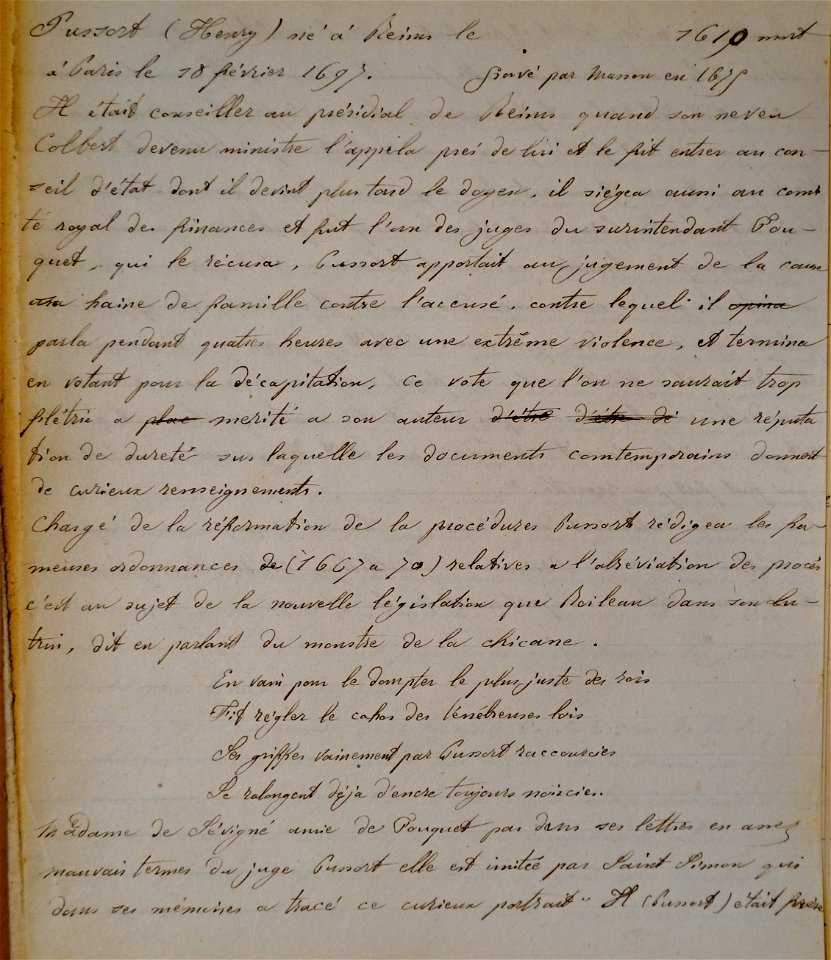 Pussort (Henry) né à Reims le 1610 mort
à Paris le 18 février 1697. Gravé par Masson en 1675
Il était conseiller au présidial de Reims quand son neveu
Colbert devenu ministre l'appela près de lui et le fit entrer au con-
seil d'état dont il devint plus tard le doyen, il siégea aussi au comi
té royal des finances et fut l'un des juges du surintendant Fou-
quet, qui le récusa, Pussort apportait au jugement de la cause
une haine de famille contre l'accusé, contre lequel il opina
parla pendant quatre heures avec une extrême violence, et termina
en votant pour la décapitation, ce vote que l'on ne saurait trop
flétrir a plac merité a son auteur d'être d'être dé une réputa
tion de dureté sur laquelle les documents comtemporains donnent
de curieux renseignements.
Chargé de la réformation de la procédures Pussort rédigea les fa-
meuses ordonnances de (1667 a 70) relatives a l'abréviation des procès
c'est au sujet de la nouvelle législation que Boileau dans son lu-
trin, dit en parlant du monstre de la chicane.
En vain pour le dompter le plus juste des rois
Fit régler le cahos des ténébreuses lois
Ses griffes vainement par Pussort raccourcies
Se ralongent déja d'encre toujours noircies.
Madame de Sévigné amie de Fouquet par dans ses lettres en assez
mauvais termes du juge Pussort elle est imitée par Saint Simon qui
dans ses mémoires a tracé ce curieux portrait " Il (Pussort) était frère